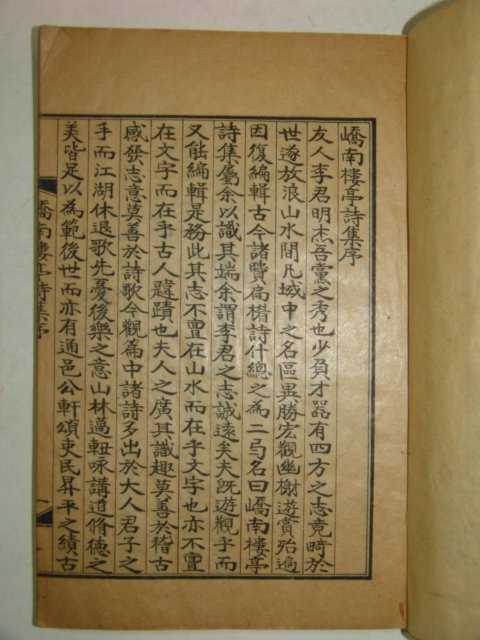 嶠南樓亭詩集序
友人李君明杰吾黨之考也少負才器有四方之志竟畸於
世遂放浪山水間凡域中之名區異勝宏觀幽榭遊賞殆遍
因復編輯古今諸賢扁楣詩什總之為二弓名曰嶠南樓亭
詩集屬余以識其端余謂李君之志誠遠矣夫旣遊觀乎而
又能編輯是務此其志不亶在山水而在乎文字也亦不亶
在文字而在乎古人韙蹟也夫人之廣其識趣莫善於稽古
感發志意莫善於詩歌今觀篇中諸詩多出於大人君子之
手而江湖休退歌先憂後樂之意山林薖軸咏講道脩德之
美皆足以為範後世而亦有通邑公軒頌吏民昇平之績古
嶠南樓亭詩集序
一